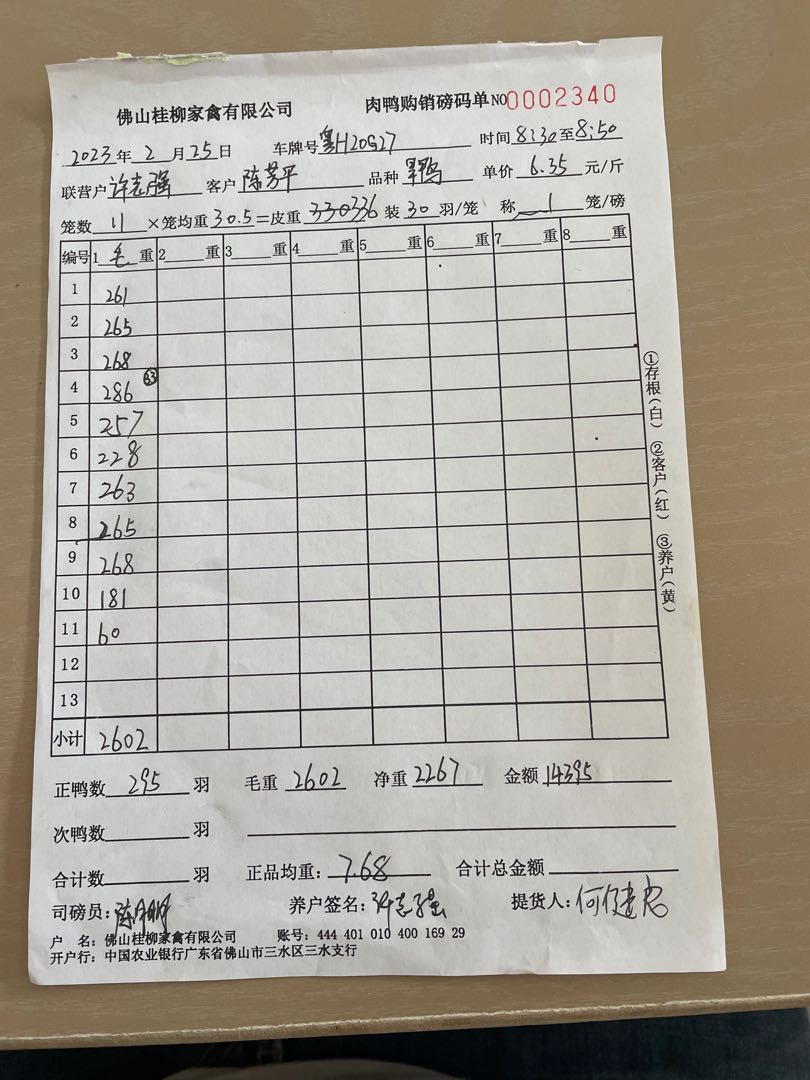 佛山桂柳家禽有限公司 肉鸭购销磅码单 NO 0002340
2023年 2 月 25 日 车牌号 粤H20G27 时间 8:30 至 8:50
联营户 许志强 客户 陈芳平 品种 单价 6.35 元/斤
笼数 11 ×笼均重 30.5 =皮重 330336 装 30 羽/笼 称 1 笼/磅
编号 1 毛 重 2 重 3 重 4 重 5 重 6 重 7 重 8 重
1 261
2 265
3 268
4 286 33
5 257
6 228
7 263
8 265
9 268
10 181
11 60
12
13
小计 2602
①存根(白) ②客户(红) ③养户(黄)
正鸭数 295 羽 毛重 2602 净重 2267 金额 14395
次鸭数 羽
合计数 羽 正品均重: 7.68 合计总金额
司磅员: 养户签名: 许志强 提货人:
户 名: 佛山桂柳家禽有限公司 账号: 444 401 010 400 169 29
开户行: 中国农业银行广东省佛山市三水区三水支行